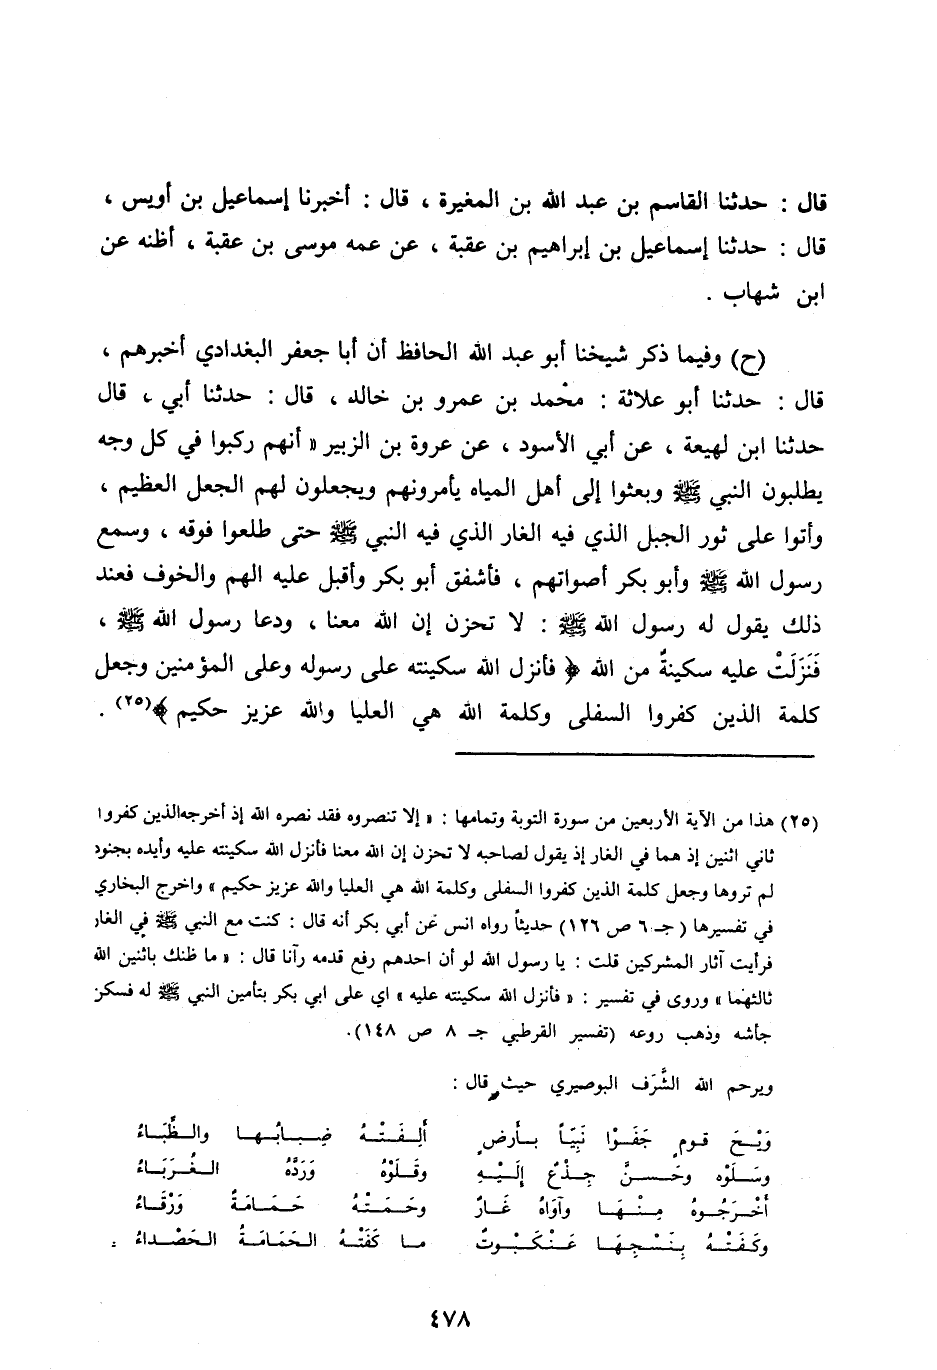 قال : حدثنا القاسم بن عبد الله بن المغيرة ، قال : أخبرنا إسماعيل بن أويس ،
قال : حدثنا إسماعيل بن إبراهيم بن عقبة ، عن عمه موسى بن عقبة ، أظنه عن
ابن شهاب .
(ح) وفيما ذكر شيخنا أبو عبد الله الحافظ أن أبا جعفر البغدادي أخبرهم ،
قال : حدثنا أبو علاثة : محمد بن عمرو بن خالد ، قال : حدثنا أبي ، قال
حدثنا ابن لهيعة ، عن أبي الأسود ، عن عروة بن الزبير « أنهم ركبوا في كل وجه
يطلبون النبي ﷺ وبعثوا إلى أهل المياه يأمرونهم ويجعلون لهم الجعل العظيم ،
وأتوا على ثور الجبل الذي فيه الغار الذي فيه النبي ﷺ حتى طلعوا فوقه ، وسمع
رسول الله ﷺ وأبو بكر أصواتهم ، فأشفق أبو بكر وأقبل عليه الهم والخوف فعند
ذلك يقول له رسول الله ﷺ : لا تحزن إن الله معنا ، ودعا رسول الله ﷺ ،
فَنَزَلَتْ عليه سكينةٌ من الله ﴿ فأنزل الله سكينته على رسوله وعلى المؤمنين وجعل
كلمة الذين كفروا السفلى وكلمة الله هي العليا والله عزيز حكيم ﴾(٢٥) .
(٢٥) هذا من الآية الأربعين من سورة التوبة وتمامها : « إلا تنصروه فقد نصره الله إذ أخرجه الذين كفروا
ثاني اثنين إذ هما في الغار إذ يقول لصاحبه لا تحزن إن الله معنا فأنزل الله سكينته عليه وأيده بجنود
لم تروها وجعل كلمة الذين كفروا السفلى وكلمة الله هي العليا والله عزيز حكيم » واخرج البخاري
في تفسيرها ( جـ ٦ ص ١٢٦) حديثاً رواه انس عن أبي بكر أنه قال : كنت مع النبي ﷺ في الغار
فرأيت آثار المشركين قلت : يا رسول الله لو أن احدهم رفع قدمه رآنا قال : « ما ظنك باثنين الله
ثالثهما » وروى في تفسير : « فأنزل الله سكينته عليه » اي على ابي بكر بتأمين النبي ﷺ له فسكن
جأشه وذهب روعه (تفسير القرطبي جـ ٨ ص ١٤٨).
ويرحم الله الشَّرَف البوصيري حيث قال :
وَيْحَ قومٍ جَفَوْا نَبِيّاً بأرضٍ أَلِفَتْهُ ضِبابُها والظِّبَاءُ
وسَلَوْه وحَسنَّ جِذْعٌ إِلَيْهِ وقَلَوْهُ وَرَدَّهُ الغُرَبَاءُ
أخْرَجُوهُ مِنْهَا وآوَاهُ غَارٌ وحَمَتْهُ حَمَامَةٌ وَرْقَاءُ
وكَفَتْهُ بِنَسْجِهَا عَنْكَبُوتٌ ما كَفَتْهُ الحَمَامَةُ الحَصْداءُ :
٤٧٨